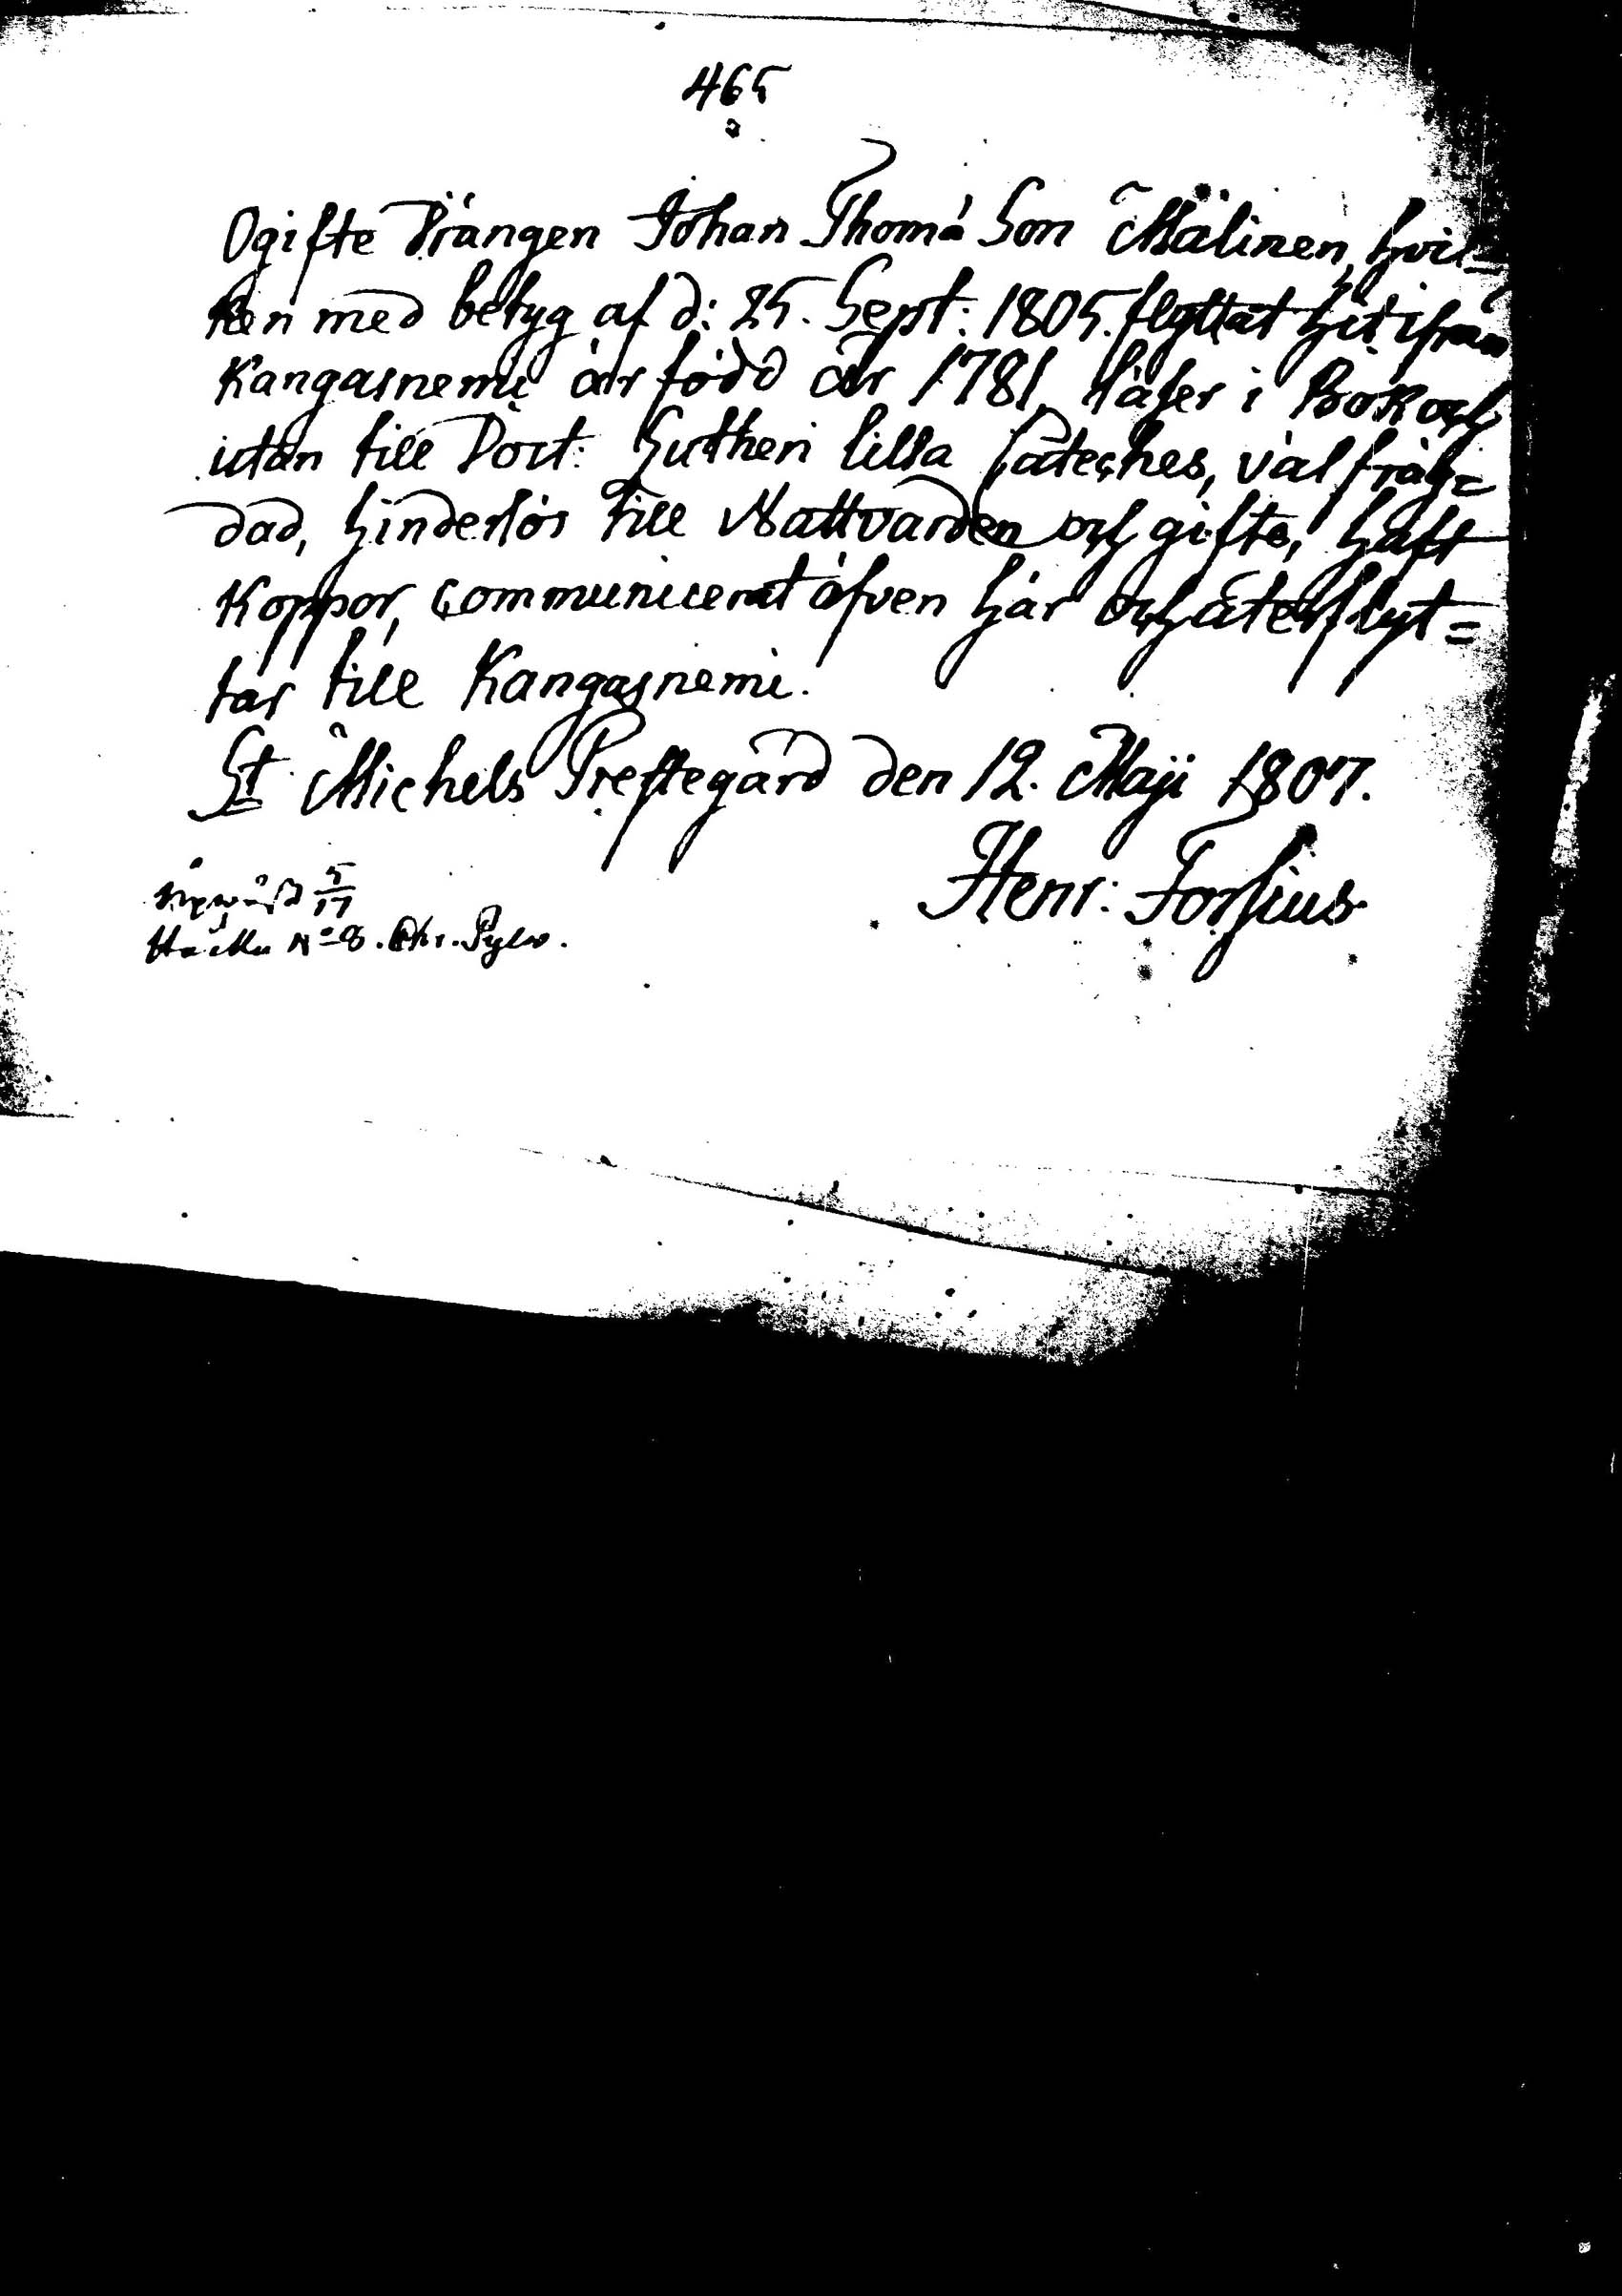 465
Ogifte Drängen Johan Thomä Son Mälinen, hvil=
ken med betyg af d: 25. Sept: 1805. flyttat hit ifrån
Kangasnemi är född år 1781, läser i Bok och
utan till Doct: Lutheri lilla Cateches, väl fräg=
dad, hinderlös till Nattvarden och gifte, haft
Koppor, communicerat äfven här och återflyt=
tar till Kangasnemi.
St Michels Prestegård den 12. Maji 1807.
Henr: Forsius
5/17
No 8. Chr. Pylv.